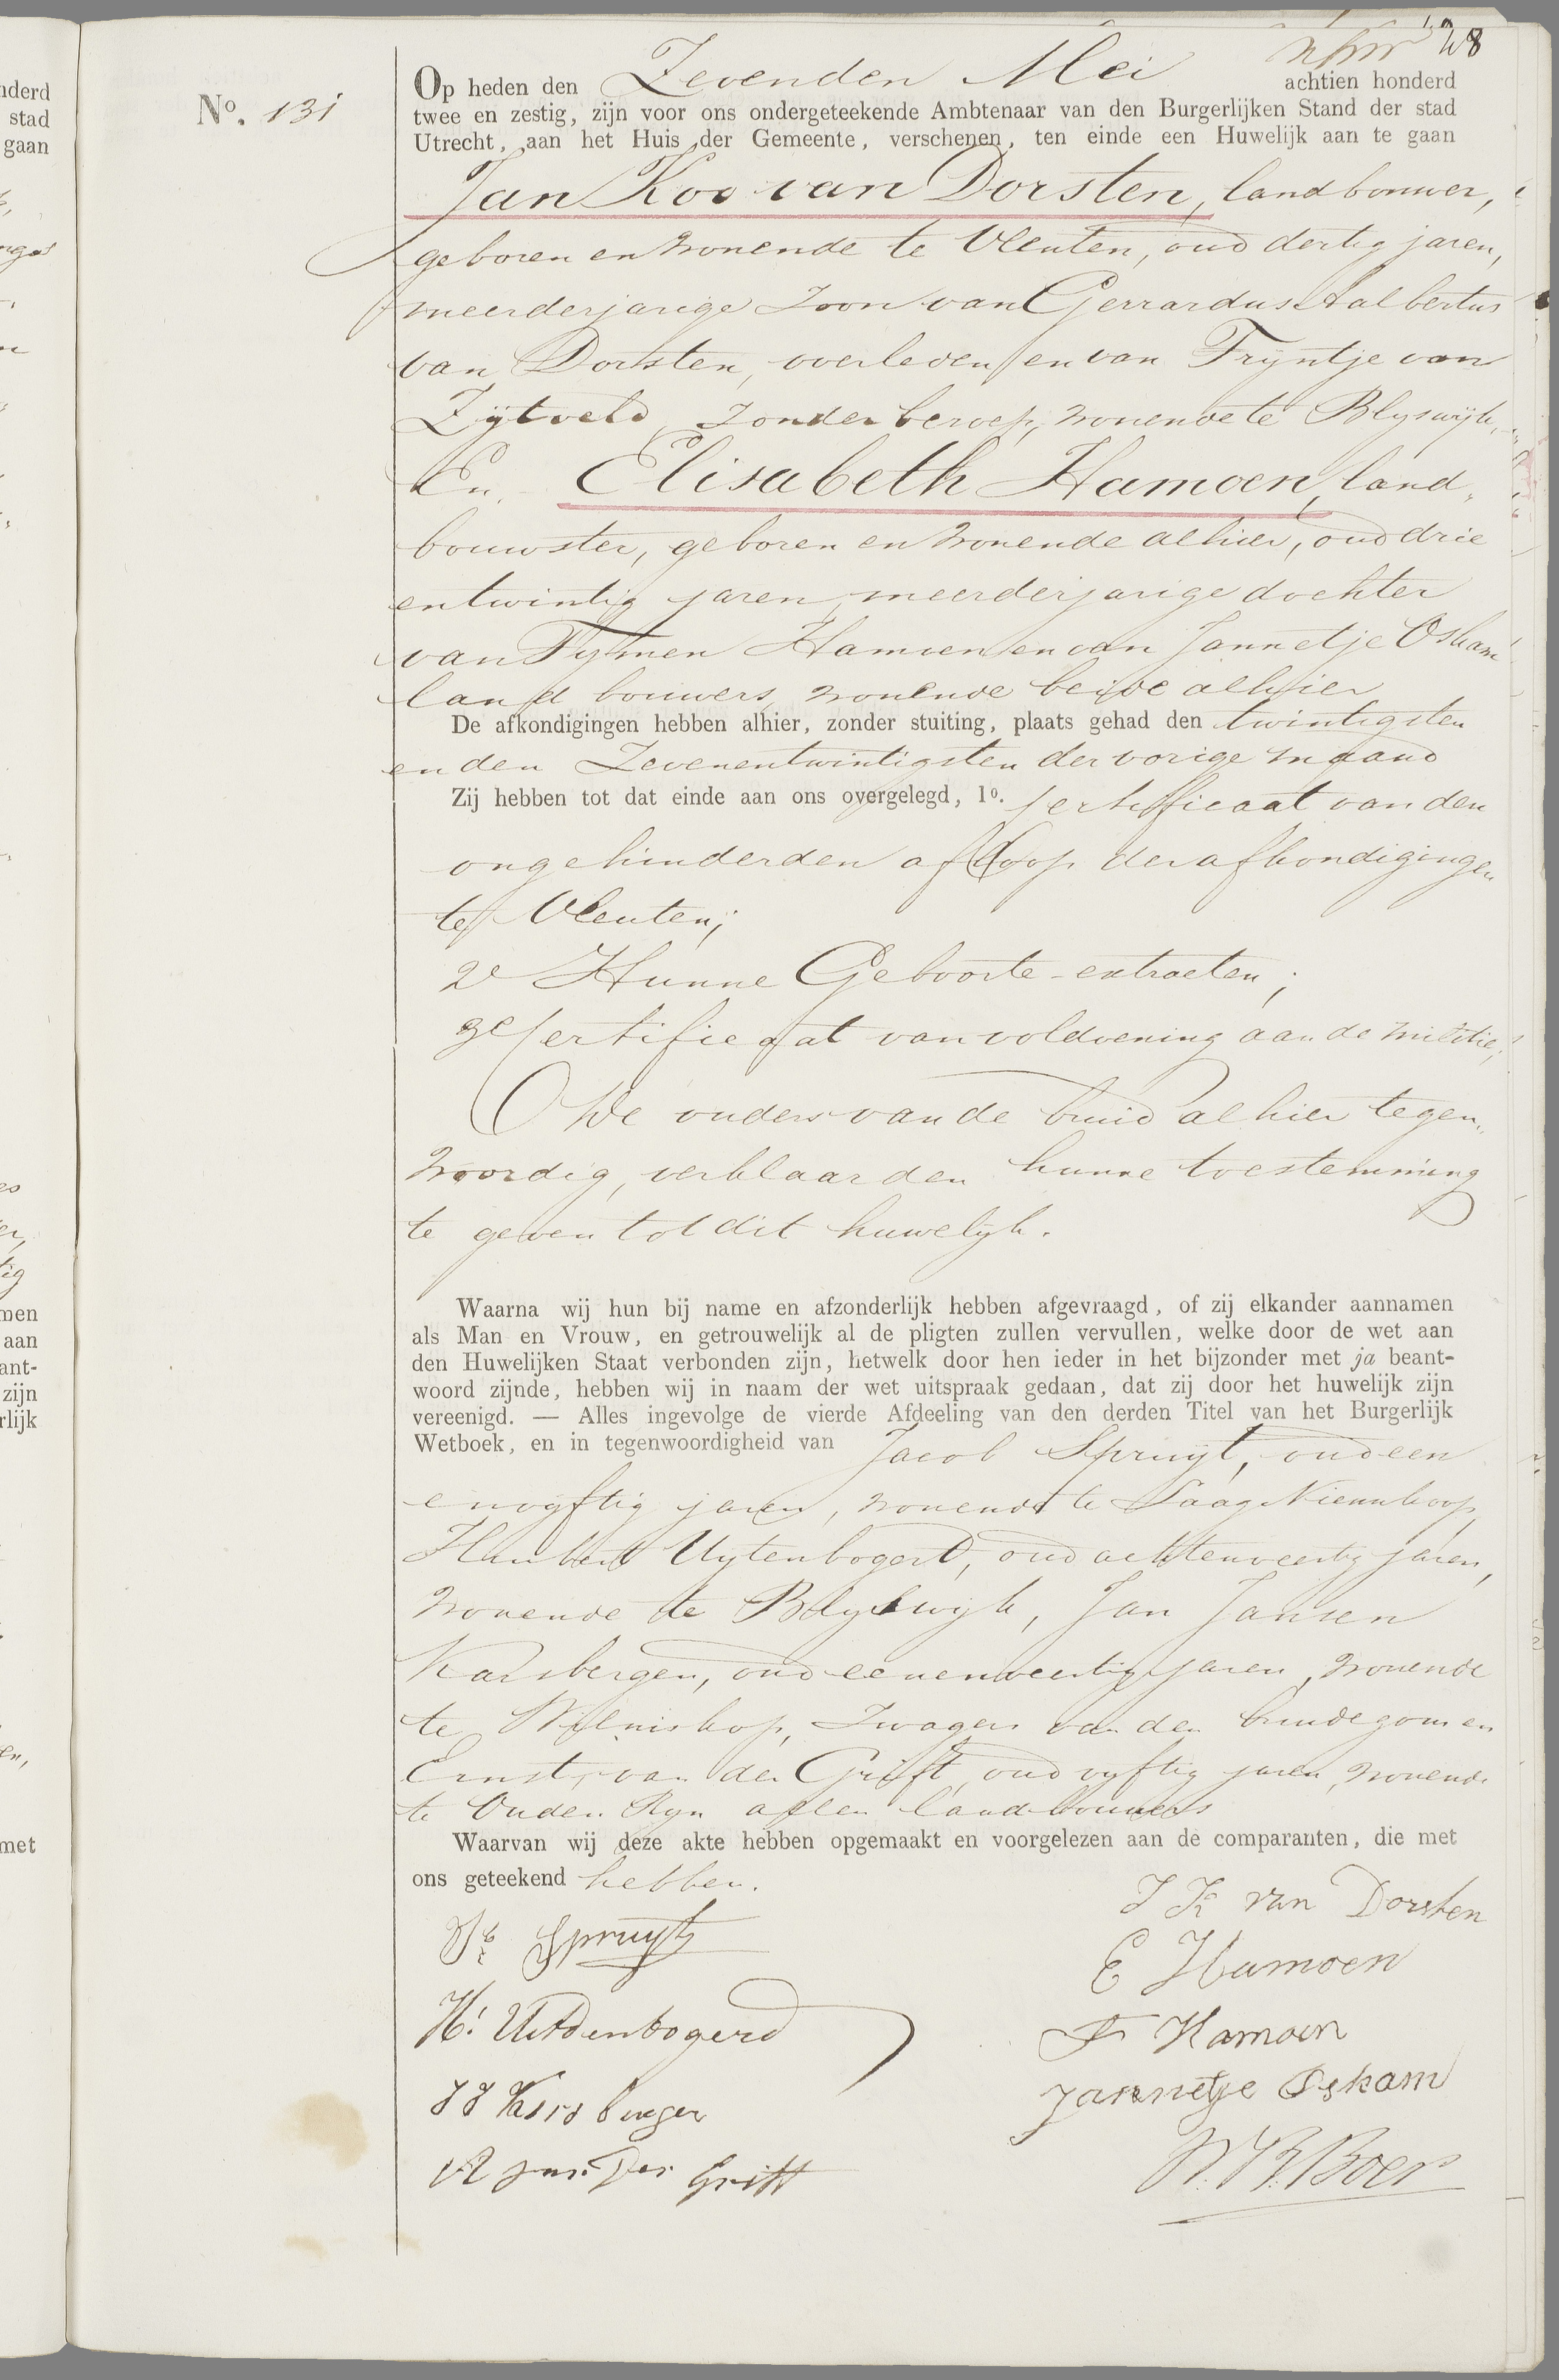 28
Nº. 131
Op heden den Zevenden Mei achtien honderd
twee en zestig, zijn voor ons ondergeteekende Ambtenaar van den Burgerlijken Stand der stad
Utrecht, aan het Huis der Gemeente, verschenen, ten einde een Huwelijk aan te gaan
Jan Koo van Dorsten, landbouwer,
geboren en wonende te Vleuten, oud dertig jaren,
meerderjarige Zoon van Gerrardus Aalbertus
van Dorsten, overleden en van Tryntje van
Zijtveld, zonder beroep, wonende te Blyswijk,
En Elisabeth Hamoen, land-
bouwster, geboren en wonende alhier, oud drie
entwintig jaren, meerderjarige dochter
van Tymen Hamoen en van Jannetje Oskam
landbouwers, wonende beide alhier
De afkondigingen hebben alhier, zonder stuiting, plaats gehad den twintigsten
en den Zevenentwintigsten der vorige maand
Zij hebben tot dat einde aan ons overgelegd, 1º. Certificaat van den
ongehinderden afloop der afkondigingen
te Vleuten;
2e Hunne Geboorte-extracten;
3e Certificaat van voldoening aan de militie;
De ouders van de bruid alhier tegen-
woordig, verklaarden hunne toestemming
te geven tot dit huwelijk.
Waarna wij hun bij name en afzonderlijk hebben afgevraagd, of zij elkander aannamen
als Man en Vrouw, en getrouwelijk al de pligten zullen vervullen, welke door de wet aan
den Huwelijken Staat verbonden zijn, hetwelk door hen ieder in het bijzonder met ja beant-
woord zijnde, hebben wij in naam der wet uitspraak gedaan, dat zij door het huwelijk zijn
vereenigd. — Alles ingevolge de vierde Afdeeling van den derden Titel van het Burgerlijk
Wetboek, en in tegenwoordigheid van Jacob Spruijt, oud een
envyftig jaren, wonende te Laag Nieuwkoop,
Huibert Uytenbogerd, oud achtenveertig jaren,
wonende te Blyswijk, Jan Jansen
Karsbergen, oud eenenveertig jaren, wonende
te Wilniskop, Zwagers van den bruidegom en
Ernst van der Grift, oud vyftig jaren, wonende
te Ouden Ryn allen landbouwers
Waarvan wij deze akte hebben opgemaakt en voorgelezen aan de comparanten, die met
ons geteekend hebben.
J K van Dorsten
Jb Spruyt
E Hamoen
H: Uitdenbogerd
T Hamoen
J J Karsberger
Jannetje Oskam
van Der Grift
Boer